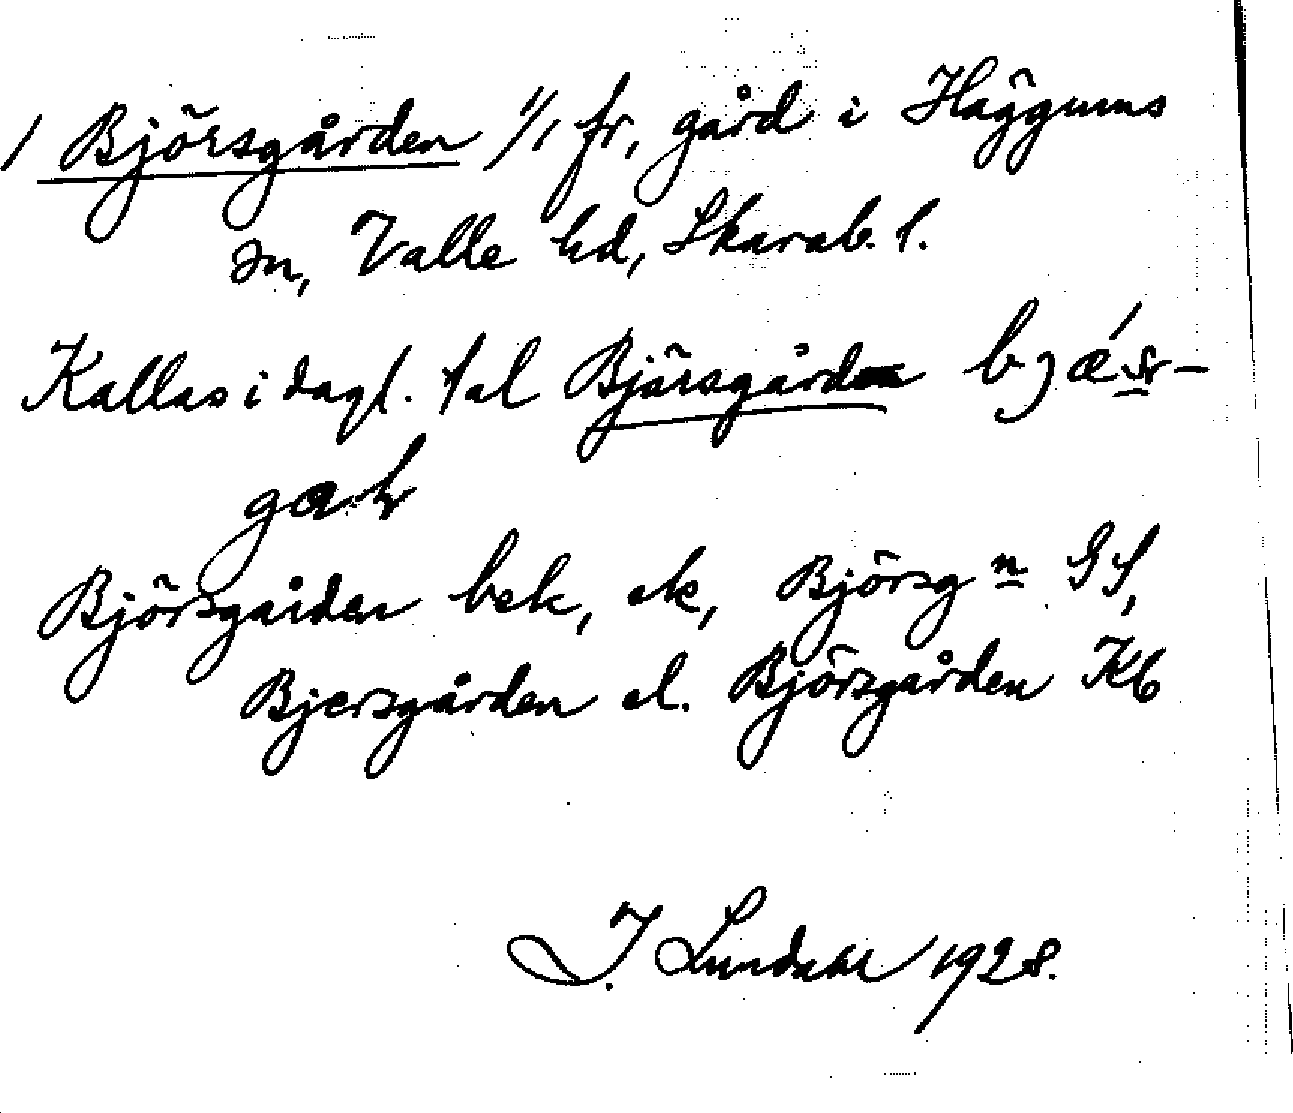 1 Björsgården 1/1 fr, gård i Häggums
sn, Valle hd, Skarab. l.
Kallas i dagl. tal Björsgården bjæ´sr-
gaḷ
Björsgården bek, ek, Björsg n GS,
Bjersgården el. Björsgården Kb
I. Lundahl 1928.